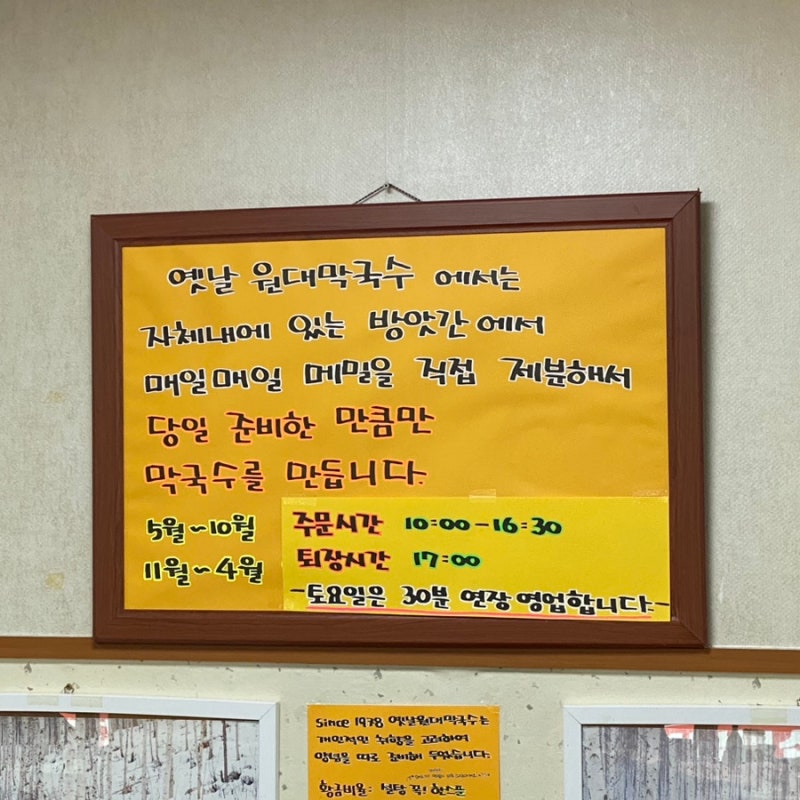 옛날 원대막국수 에서는
자체내에 있는 방앗간에서
매일매일 메밀을 직접 제분해서
당일 준비한 만큼만
막국수를 만듭니다.
5월~10월
11월~4월
주문시간 10:00-16:30
퇴장시간 17:00
-토요일은 30분 연장 영업합니다.-
Since 1978 옛날원대막국수는
개인적인 취향을 고려하여
양념을 따로 준비해 두었습니다.
황금비율: 설탕 꼭! 한스플